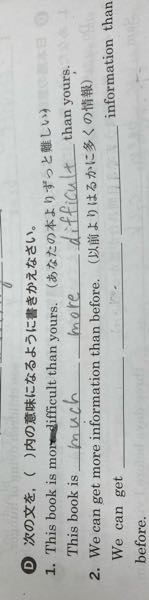 D 次の文を，（ ）内の意味になるように書きかえなさい。
1. This book is more difficult than yours. （あなたの本よりずっと難しい）
This book is much more difficult than yours.
2. We can get more information than before. （以前よりはるかに多くの情報）
We can get information than
before.